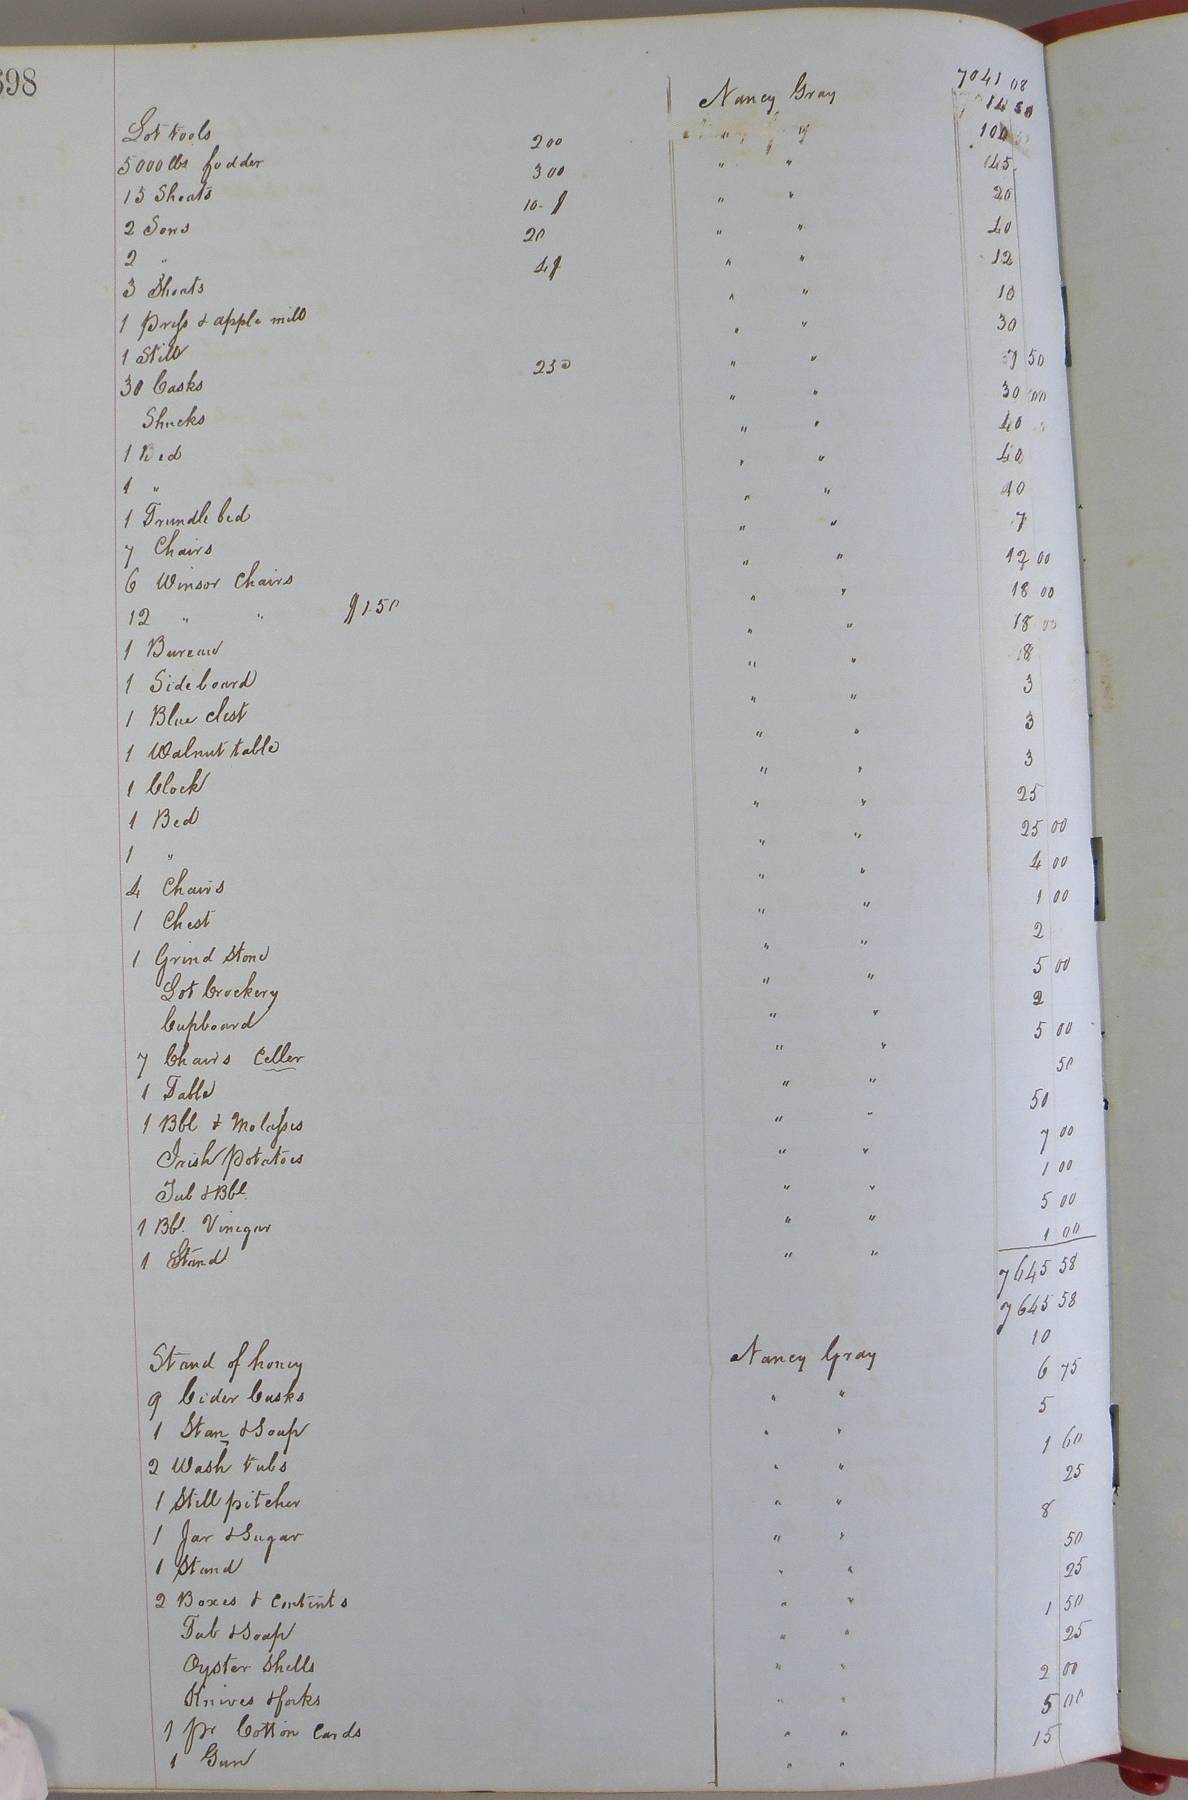 698
7041 08
Lot tools Nancy Gray 14 50
5000 lbs fodder 200 " " 100
15 Shoats 300 " " 45
2 Sows 10 " " 20
2 " 20 " " 40
3 Shoats 4 " " 12
1 Press & apple mill " " 10
1 Still " " 30
30 Casks 25 " " 7 50
Shucks " " 30 00
1 Bed " " 40
1 " " " 40
1 Trundle bed " " 10
7 Chairs " " 7
6 Winsor Chairs " " 12 00
12 " " $1.50 " " 18 00
1 Bureau " " 18
1 Sideboard " " 8
1 Blue chest " " 3
1 Walnut table " " 3
1 Clock " " 3
1 Bed " " 25
1 " " " 25 00
4 Chairs " " 4 00
1 Chest " " 1 00
1 Grind Stone " " 2
Lot Crockery " " 5 00
Cupboard " " 2
7 Chairs Celler " " 5 00
1 Table " " 50
1 Bbl & Molasses " " 50
Irish potatoes " " 7 00
Tub & Bbl. " " 1 00
1 Bbl. Vinegar " " 5 00
1 Stand " " 1 00
7645 58
7645 58
Stand of honey Nancy Gray 10
9 Cider Casks " " 6 75
1 Stan & Soap " " 5
2 Wash tubs " " 1 60
1 Still pitcher " " 25
1 Jar & Sugar " " 8
1 Stand " " 50
2 Boxes & contents " " 25
Tub & Soap " " 1 50
Oyster Shells " " 25
Knives & forks " " 2 00
1 pr Cotton Cards " " 5 00
1 Gun " " 15